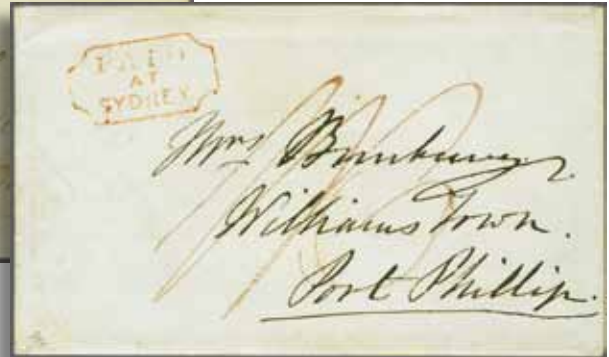 PAID
AT
SYDNEY
Mrs Bunbury.
Williams Town.
Port Phillip.